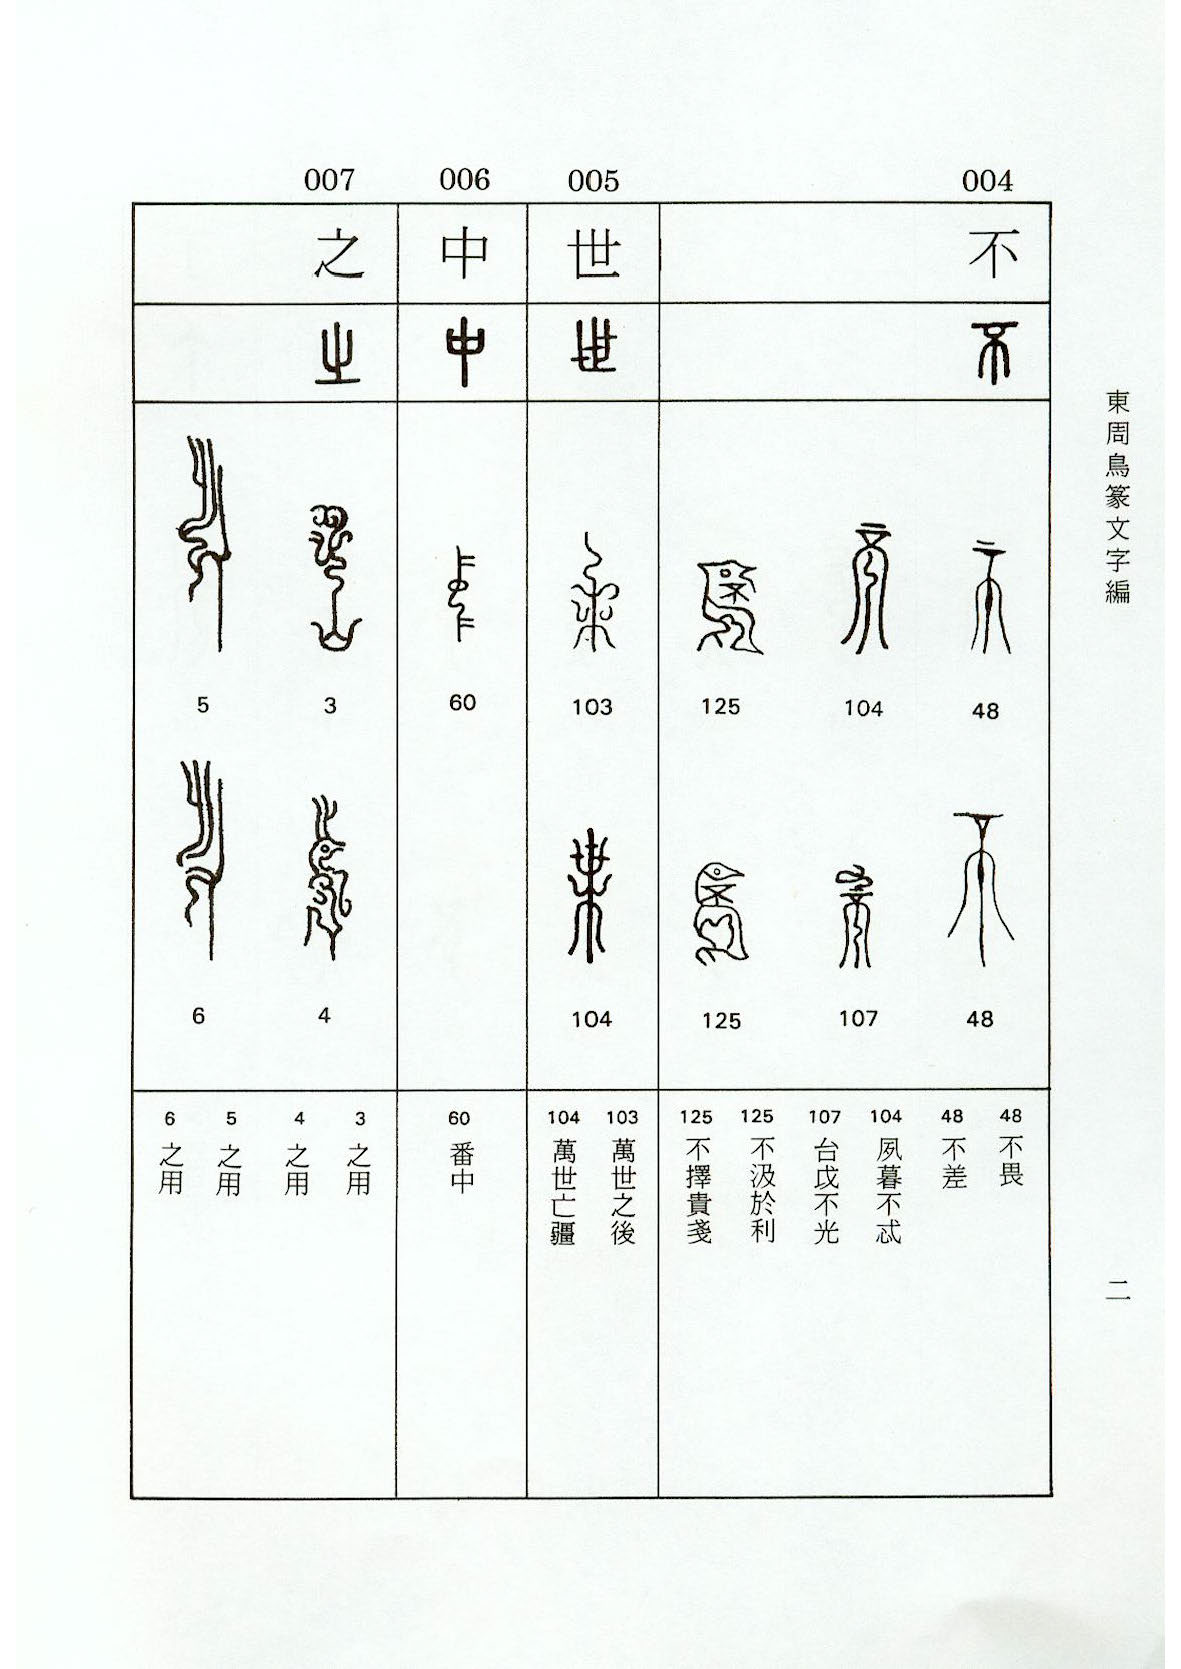 東周鳥篆文字編
二
004
不
不
48
104
125
48
107
125
48 不畏
48 不差
104 夙暮不忒
107 台戉不光
125 不汲於利
125 不擇貴戔
005
世
世
103
104
103 萬世之後
104 萬世亡疆
006
中
中
60
60 番中
007
之
之
3
5
4
6
3 之用
4 之用
5 之用
6 之用